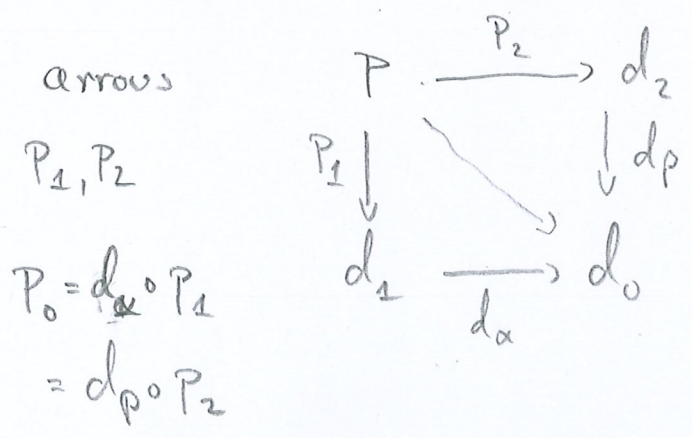 arrows
P₁, P₂
P₀ = dα ∘ P₁
= dρ ∘ P₂
P₂
P d₂
P₁ dρ
d₁ d₀
dα